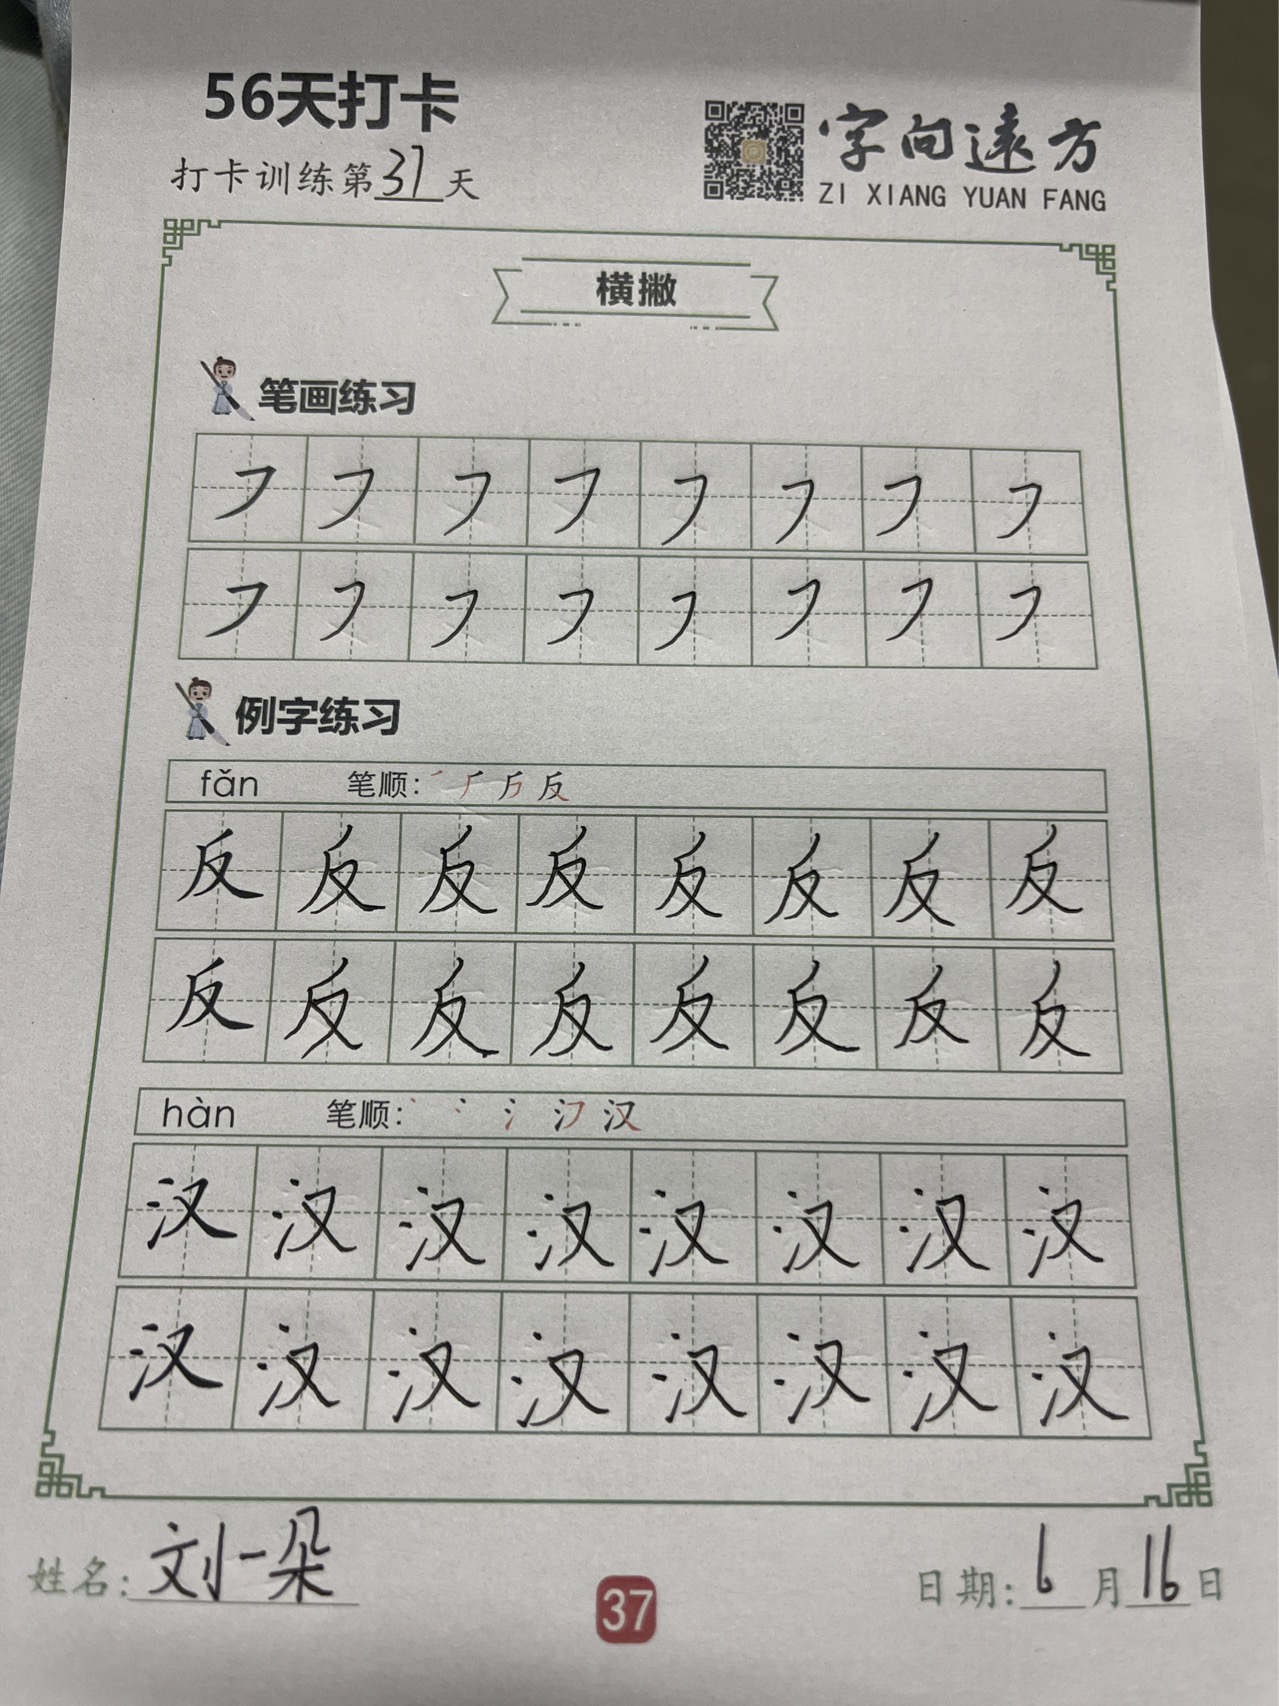 56天打卡
打卡训练第37天
字向远方
ZI XIANG YUAN FANG
横撇
笔画练习
㇇㇇㇇㇇㇇㇇㇇㇇
㇇㇇㇇㇇㇇㇇㇇㇇
例字练习
fǎn 笔顺: 反
反反反反反反反反
反反反反反反反反
hàn 笔顺: 丶 冫 氵 汉
汉汉汉汉汉汉汉汉
汉汉汉汉汉汉汉汉
姓名: 刘一朵
37
日期: 6月16日